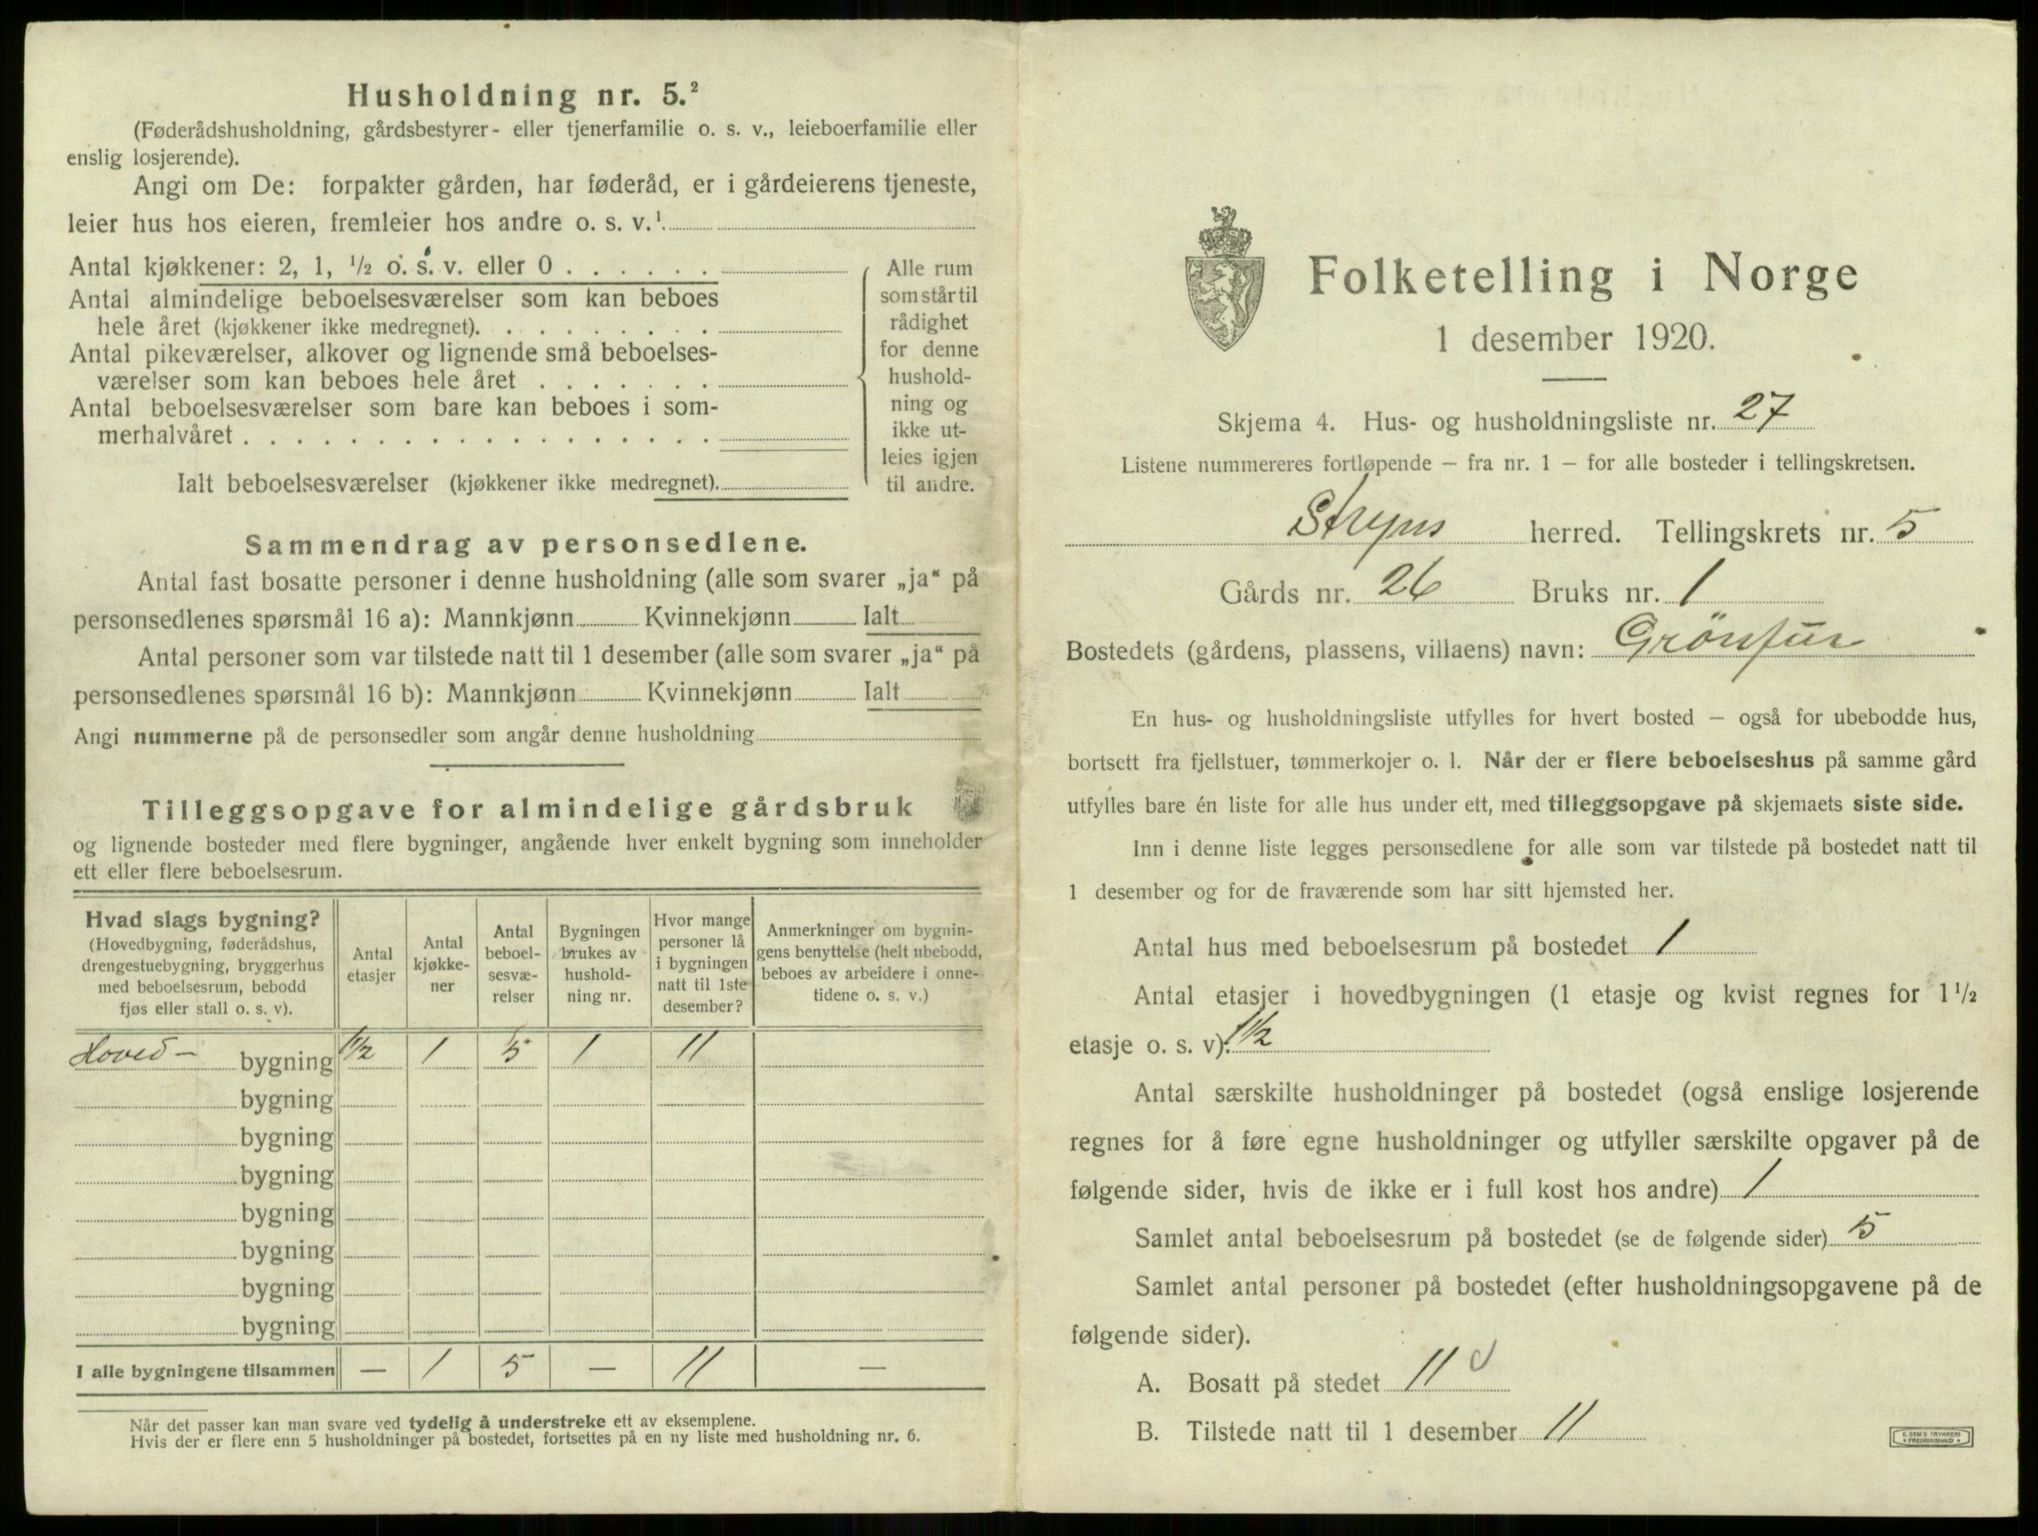 Husholdning nr. 5.²
(Føderådshusholdning, gårdsbestyrer- eller tjenerfamilie o. s. v., leieboerfamilie eller
enslig losjerende).
Angi om De: forpakter gården, har føderåd, er i gårdeierens tjeneste,
leier hus hos eieren, fremleier hos andre o. s. v.¹
Antal kjøkkener: 2, 1, ½ o. s. v. eller 0 . . . . . .
Antal almindelige beboelsesværelser som kan beboes
hele året (kjøkkener ikke medregnet). . . . . . . . .
Antal pikeværelser, alkover og lignende små beboelses-
værelser som kan beboes hele året . . . . . . .
Antal beboelsesværelser som bare kan beboes i som-
merhalvåret . . . . . . . . . . . . . . . . . .
Ialt beboelsesværelser (kjøkkener ikke medregnet).
Alle rum
som står til
rådighet
for denne
hushold-
ning og
ikke ut-
leies igjen
til andre.
Sammendrag av personsedlene.
Antal fast bosatte personer i denne husholdning (alle som svarer „ja“ på
personsedlenes spørsmål 16 a): Mannkjønn Kvinnekjønn Ialt
Antal personer som var tilstede natt til 1 desember (alle som svarer „ja“ på
personsedlenes spørsmål 16 b): Mannkjønn Kvinnekjønn Ialt
Angi nummerne på de personsedler som angår denne husholdning
Tilleggsopgave for almindelige gårdsbruk
og lignende bosteder med flere bygninger, angående hver enkelt bygning som inneholder
ett eller flere beboelsesrum.
Hvad slags bygning?
(Hovedbygning, føderådshus,
drengestuebygning, bryggerhus
med beboelsesrum, bebodd
fjøs eller stall o. s. v).
Antal
etasjer
Antal
kjøkke-
ner
Antal
beboel-
sesvæ-
relser
Bygningen
brukes av
hushold-
ning nr.
Hvor mange
personer lå
i bygningen
natt til 1ste
desember?
Anmerkninger om bygnin-
gens benyttelse (helt ubebodd,
beboes av arbeidere i onne-
tidene o. s. v.)
Hoved- bygning 1½ 1 5 1 11
bygning
bygning
bygning
bygning
bygning
bygning
bygning
I alle bygningene tilsammen — 1 5 — 11 —
Når det passer kan man svare ved tydelig å understreke ett av eksemplene.
Hvis der er flere enn 5 husholdninger på bostedet, fortsettes på en ny liste med husholdning nr. 6.
Folketelling i Norge
1 desember 1920.
Skjema 4. Hus- og husholdningsliste nr. 27
Listene nummereres fortløpende – fra nr. 1 – for alle bosteder i tellingskretsen.
Stryns herred. Tellingskrets nr. 5
Gårds nr. 26 Bruks nr. 1
Bostedets (gårdens, plassens, villaens) navn: Grönfur
En hus- og husholdningsliste utfylles for hvert bosted – også for ubebodde hus,
bortsett fra fjellstuer, tømmerkojer o. l. Når der er flere beboelseshus på samme gård
utfylles bare én liste for alle hus under ett, med tilleggsopgave på skjemaets siste side.
Inn i denne liste legges personsedlene for alle som var tilstede på bostedet natt til
1 desember og for de fraværende som har sitt hjemsted her.
Antal hus med beboelsesrum på bostedet 1
Antal etasjer i hovedbygningen (1 etasje og kvist regnes for 1½
etasje o. s. v). 1½
Antal særskilte husholdninger på bostedet (også enslige losjerende
regnes for å føre egne husholdninger og utfyller særskilte opgaver på de
følgende sider, hvis de ikke er i full kost hos andre) 1
Samlet antal beboelsesrum på bostedet (se de følgende sider) 5
Samlet antal personer på bostedet (efter husholdningsopgavene på de
følgende sider).
A. Bosatt på stedet 11
B. Tilstede natt til 1 desember 11
E. SEM'S TRYKKERI
FREDRIKSHALD